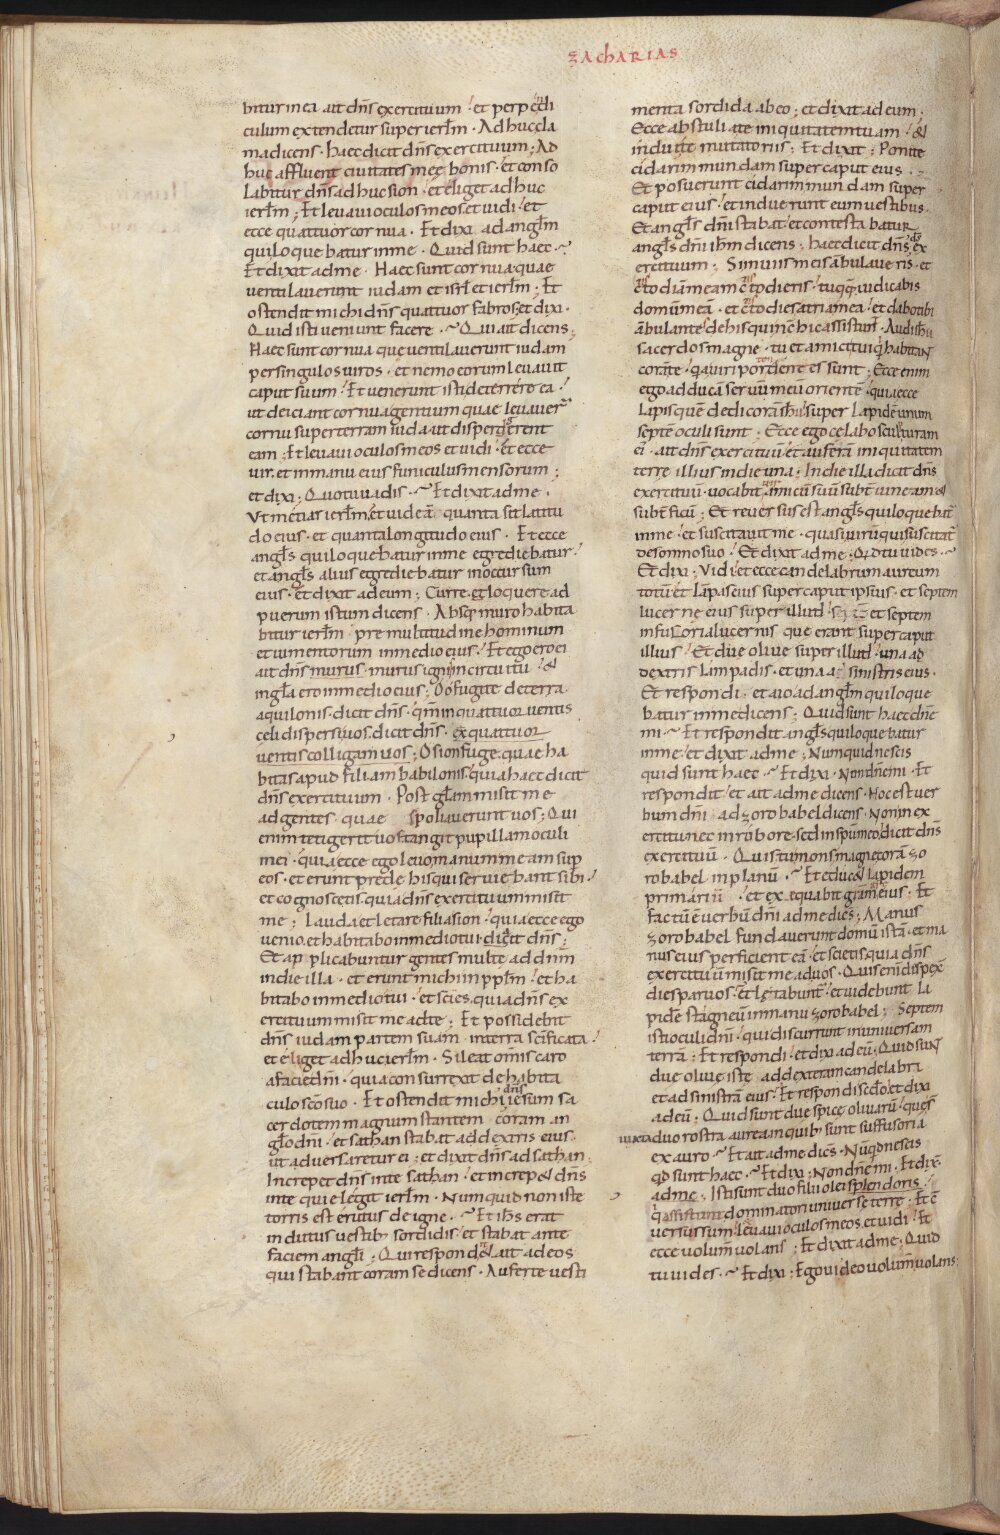 ZAChARIAS
bitur in ea ait dn̄s exercituum · et perpendi
culum extendetur super ierl̄m · Adhuc cla
ma dicens · haec dicit dn̄s exercituum; Ad
huc affluent civitates meę bonis · et conso
labitur dn̄s adhuc sion · et eliget adhuc
ierl̄m; Et levavi oculos meos et vidi · et
ecce quattuor cornua · Et dixi ad angl̄m
qui loquebatur in me · Quid sunt haec ·~
Et dixit ad me · Haec sunt cornua quae
ventilaverunt iudam et isrl̄ et ierl̄m; Et
ostendit michi dn̄s quattuor fabros, et dixi ·
Quid isti veniunt facere ·~ Qui ait dicens;
Haec sunt cornua que ventilaverunt iudam
per singulos viros · et nemo eorum levavit
caput suum · Et venerunt isti deterrere ea ·
ut deiciant cornua gentium quae levaver̄
cornu super terram iuda ut dispergerent
eam; Et levavi oculos meos et vidi · et ecce
vir · et in manu eius funiculus mensorum;
et dixi; Quo tu vadis ·~ Et dixit ad me ·
Ut metiar ierl̄m, et videā quanta sit latitu
do eius · et quanta longitudo eius · Et ecce
angl̄s qui loquebatur in me egrediebatur ·
et angl̄s alius egrediebatur in occursum
eius · et dixit ad eum; Curre, et loquere ad
puerum istum dicens · Absq; muro habita
bitur ierl̄m · pre multitudine hominum
et iumentorum in medio eius · Et ego ero ei
ait dn̄s murus · murus ignis in circuitu · &
in gl̄a ero in medio eius; O o fugite de terra
aquilonis · dicit dn̄s · qm̄ in quattuor ventis
celi dispersi vos, dicit dn̄s · ex quattuor
ventis colligam vos; O sion fuge · quae ha
bitas apud filiam babilonis, quia haec dicit
dn̄s exercituum · Post gl̄am misit me
ad gentes quae spoliaverunt vos; Qui
enim tetigerit vos tangit pupillam oculi
mei · quia ecce ego levo manum meam sup
eos · et erunt prede his qui serviebant sibi ·
et cognoscetis · quia dn̄s exercituum misit
me; Lauda et letare filia sion · quia ecce ego
venio, et habitabo in medio tui · dicit dn̄s;
Et applicabuntur gentes multe ad dnm̄
in die illa · et erunt michi in ppl̄m · et ha
bitabo in medio tui · et scies · quia dn̄s ex
ercituum misit me ad te; Et possidebit
dn̄s iudam partem suam · in terra sc̄ificata ·
et eliget adhuc ierl̄m · Sileat om̄is caro
a facie dn̄i · quia consurrexit de habita
culo sc̄o suo · Et ostendit michi dn̄s iesum sa
cerdotem magnum stantem coram an
gl̄o dn̄i · et sathan stabat ad dextris eius ·
ut adversaretur ei · et dixit dn̄s ad sathan ·
Increpet dn̄s in te sathan · et increp& dn̄s
in te qui elegit ierl̄m · Numquid non iste
torris est erutus de igne ·~ Et ih̄s erat
indutus vestib; sordidis · et stabat ante
faciem angl̄i; Qui respond& ait ad eos
qui stabant coram se dicens · Auferte vesti
menta sordida ab eo; et dixit ad eum ·
Ecce abstuli a te iniquitatem tuam · &
indui te mutatoriis; Et dixit; Ponite
cidarim mundam super caput eius ·
Et posuerunt cidarim mundam super
caput eius · et induerunt eum vestibus ·
Et angl̄s dn̄i stabat · et contestabatur
angl̄s dn̄i ih̄m dicens; haec dicit dn̄s ds̄ ex
ercituum · Si in viis meis ābulaveris · et
custodiā meam custodieris · tu quoq; iudicabis
domum meā · et custodies atria mea · et dabo tibi
ābulantes de his qui nc̄ hic assistunt · Audi ih̄u
sacerdos magne · tu et amici tui q̄ habitan
corā te · q̄a viri portendentes sunt; Ecce enim
ego adducā servū meū orientē · quia ecce
lapis quē dedi corā ih̄u; super lapidē unum
septē oculi sunt; Ecce ego celabo sculpturam
ei · ait dn̄s exercituū et auferā iniquitatem
terre illius in die una; In die illa dicit dn̄s
exercituū · vocabit vir amicū suū subt̄ vineam &
subt̄ ficū; Et reversus est angl̄s qui loquebat̄
in me · et suscitavit me · quasi virū qui suscitat̄
de somno suo · Et dixit ad me · Qd tu vides ·~
Et dixi · Vidi et ecce candelabrum aureum
totū et lāpas eius super caput ipsius · et septem
lucerne eius super illud et septem
infusoria lucernis que erant super caput
illius · Et due olive super illud · una ad
dextris lampadis · et una a sinistris eius ·
Et respondi · et aio ad angl̄m qui loque
batur in me dicens; Quid sunt haec dn̄e
mi ·~ Et respondit angl̄s qui loquebatur
in me · et dixit ad me; Numquid nescis
quid sunt haec ·~ Et dixi · Non dn̄e mi · Et
respondit · et ait ad me dicens · Hoc est ver
bum dn̄i ad zorobabel dicens · Non in ex
ercitu nec in robore · sed in spū meo, dicit dn̄s
exercituū · Quis tu mons magne corā zo
robabel in planū ·~ Et educ& lapidem
primariū · et exequabit grām eius; Et
factū ē verbū dn̄i ad me dicēs; Manus
zorobabel fundaverunt domū istā · et ma
nus eius perficient eā · et scietis quia dn̄s
exercituū misit me ad vos · Quis enī dispex̄
dies parvos · et lętabunt̄ · et videbunt la
pidē stagneū in manu zorobabel; Septem
isti oculi dn̄i · qui discurrunt in universam
terrā; Et respondi · et dixi ad eū; Quid sun
due olive iste ad dexteram candelabri
et ad sinistrā eius · Et respondi secd̄o, et dixi
ad eū · Quid sunt due spice olivarū · que s̄
iuxta duo rostra aurea in quib; sunt suffusoria
ex auro ·~ Et ait ad me dicēs · Nūq̄d nescis
qd sunt haec ·~ Et dixi; Non dn̄e mi · Et dix̄
ad me; Isti sunt duo filii olei splendoris ·
q̄ assistunt dominatori universe terre; Et c̄
versus sum · levavi oculos meos, et vidi · Et
ecce volum̄ volans; Et dixit ad me; Quid
tu vides ·~ Et dixi; Ego video volum̄ volans;